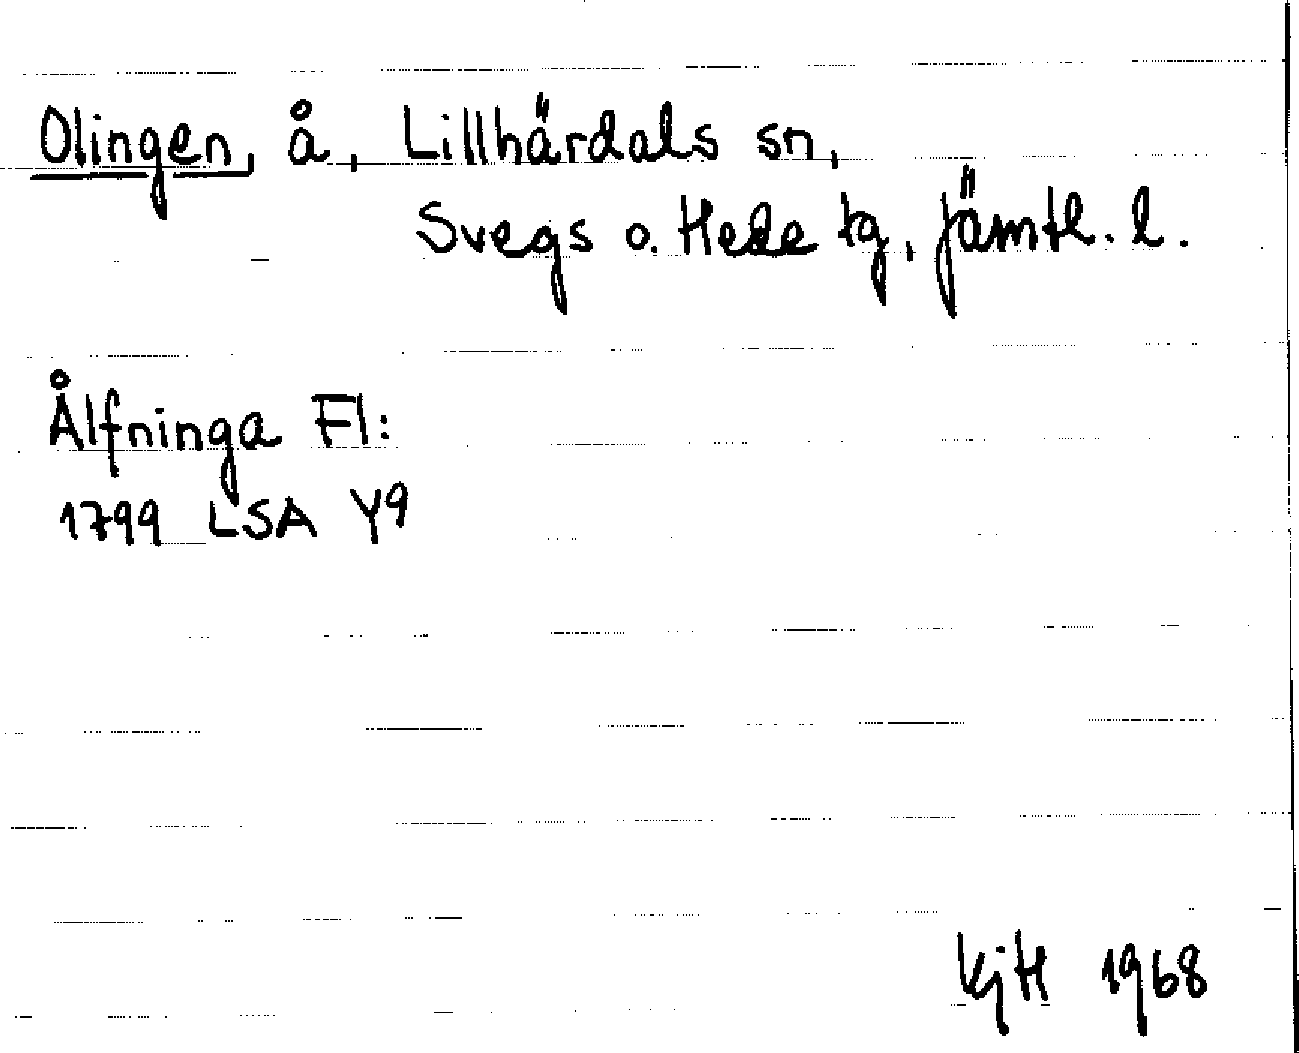 Olingen, å, Lillhärdals sn,
Svegs o. Hede tg, Jämtl. l.
Ålfninga Fl:
1799 LSA Y9
KjH 1968